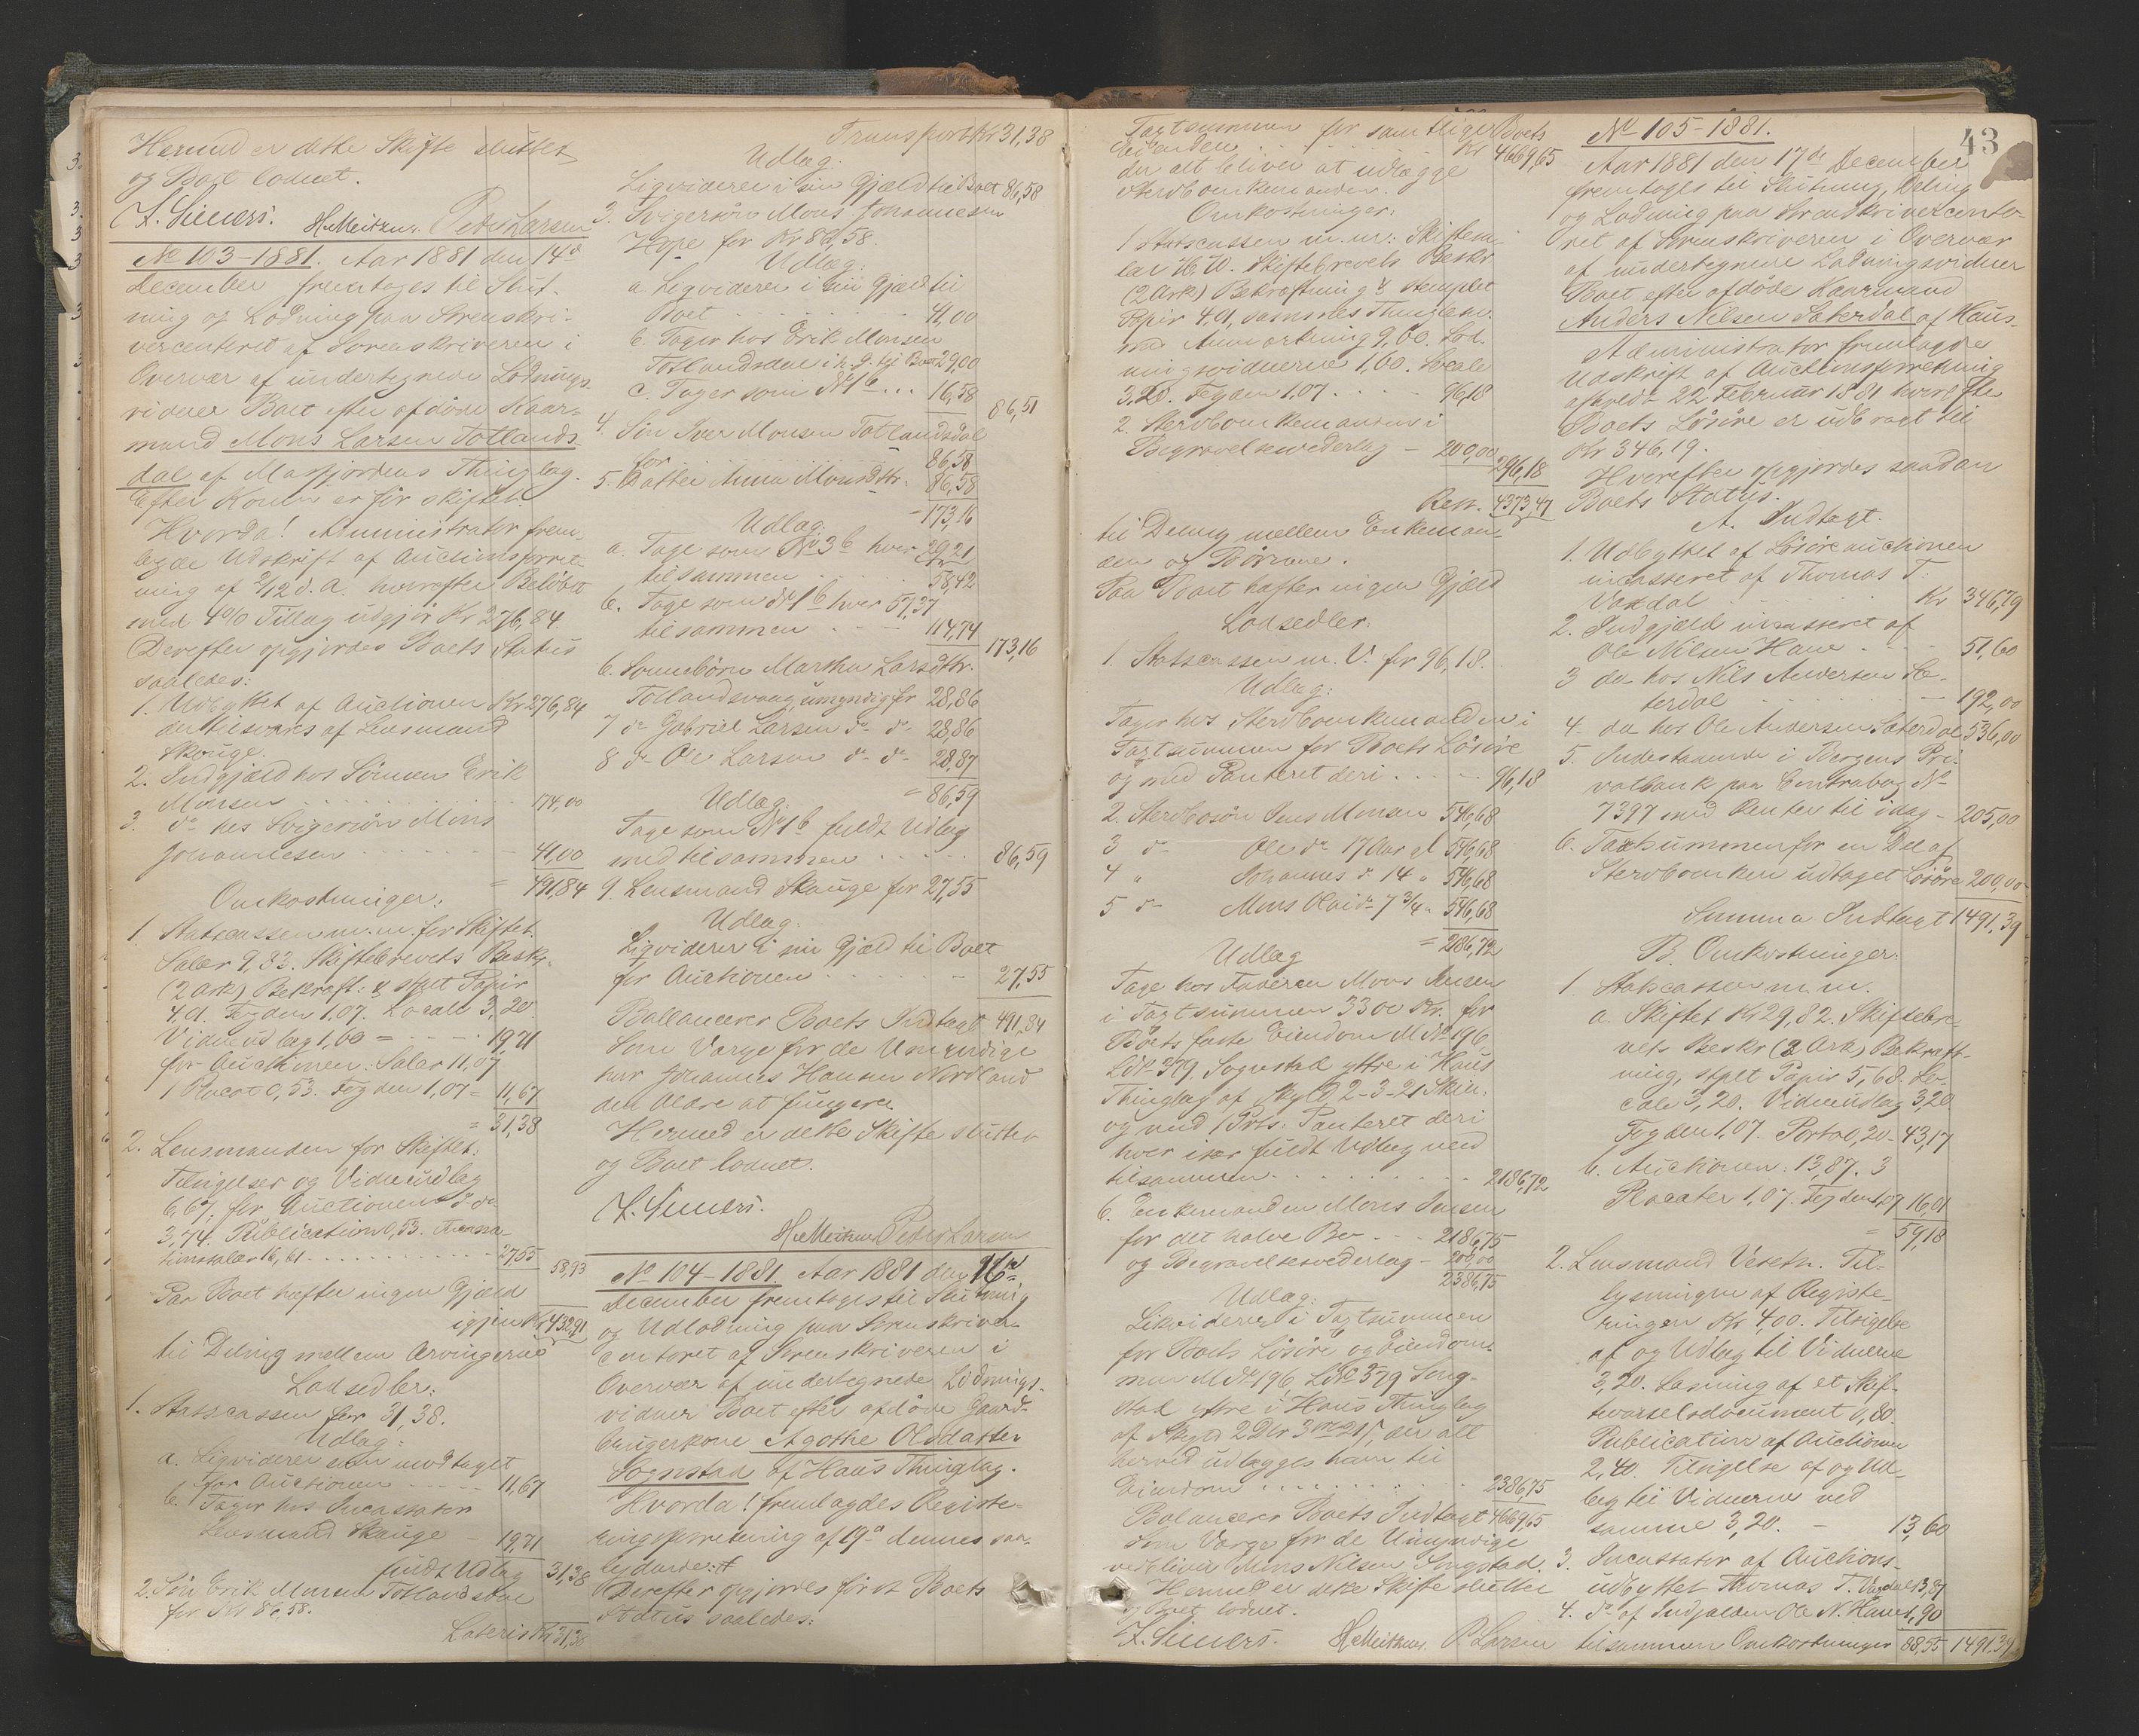 Hermed er dette Skifte sluttet
og Boet loddet.
Z. Siewers. H. Meitzner. Peter Larsen
No 103-1881. Aar 1881 den 14de
December fremtoges til Slut-
ning og Lodning paa Sorenskri-
vercontoret af Sorenskriveren i
Overvær af undertegnede Lodnings-
vidner Boet efter afdøde Kaar-
mand Mons Larsen Totlands-
dal af Masfjordens Thinglag.
Efter Konen er før skiftet.
Hvorda! Administrator frem-
lagde Udskrift af Auctionsforret-
ning af 2/12 d. A. hvorefter Beløbet
med 4% Tillæg udgjør Kr 276,84.
Derefter opgjordes Boets Status
saaledes:
1. Udbyttet af Auctionen Kr 276,84
der tilsvares af Lensmand
Skauge.
2. Indgjæld hos Sønnen Erik
Monsen . . . 174,00
3. do hos Svigersøn Mons
Johannesen . . . 41,00
= 491,84
Omkostninger:
1. Statscassen m. m. for Skiftet.
Salær 9,83. Skiftebrevets Beskr.
(2 Ark) Bekræft: & stplt Papir
4,01. Fogden 1,07. Locale 3,20.
Vidneudlæg 1,60 = . . . 19,71
for Auctionen: Salær 11,07
1 Placat 0,53. Fogden 1,07 = 11,67
= 31,38
2. Lensmanden for Skiftet:
Tilsigelser og Vidneudlæg
6,67. for Auctionen do
3,74. Publication 0,53.
salær 16,61 . . . 27,55
58,93
Paa Boet hæfter ingen Gjæld
igjen Kr 432,91
til Deling mellem Arvingerne
Lodsedler:
1. Statscassen for 31,38.
Udlæg:
a. Ligviderer som modtaget
for Auctionen . . . 11,67
b. Tager hos Incassator
Lensmand Skauge - 19,71
fuldt Udlæg 31,38
2. Søn Erik Monsen Totlandsdal
for Kr 86,58.
Lateris Kr 31,38
Transport Kr 31,38
Udlæg:
Ligviderer i sin Gjæld til Boet 86,58
3. Svigersøn Mons Johannesen
Hope for Kr 86,58.
Udlæg:
a. Ligviderer i sin Gjæld til
Boet . . . 41,00
b. Tager hos Erik Monsen
Totlandsdal i h. G. til Boet 29,00
c. Tager som No 1 b . . . 16,58
86,51
4. Søn Iver Monsen Totlandsdal
for . . . 86,58
5. Datter Anna Monsdtr. 86,58
- 173,16
Udlæg:
a. Tage som No 3 b hver 29,21
tilsammen . . . 58,42
b. Tage som No 1 b hver 57,37
tilsammen . . . 114,74
173,16
6. Sønnebørn Martha Larsdtr.
Totlandsvaag, umyndig for 28,86
7 do Gabriel Larsen do do 28,86
8 do Ole Larsen do do 28,87
= 86,59
Udlæg.
Tage som No 1 b fuldt Udlæg
med tilsammen . . . 86,59
9. Lensmand Skauge for 27,55
Udlæg.
Ligviderer i sin Gjæld til Boet
for Auctionen . . . 27,55
Ballancerer Boets Indtægt 491,84
Som Værge for de Umyndige
har Johannes Hansen Nordland
den Ældre at fungere.
Hermed er dette Skifte sluttet
og Boet loddet.
Z. Siewers.
H. Meitzner Peter Larsen
No 104-1881. Aar 1881 den 16de
December fremtoges til Slutning
og Udlodning paa Sorenskriver-
contoret af Sorenskriveren i
Overvær af undertegnede Lodnings-
vidner Boet efter afdøde Gaard-
brugerkone Agathe Olsdatter
Sognstad af Haus Thinglag.
Hvorda! fremlagdes Registre-
ringsforretning af 19de dennes saa-
lydende: #
Derefter opgjordes først Boets
Status saaledes:
Taxtsummen for samtlige Boets
Eiendele . . . Kr 4669,65
der alt bliver at udlægge
Sterbboenkemanden.
Omkostninger:
1. Statscassen m. m.: Skiftesa-
lær 76,70. Skiftebrevets Beskr.
(2 Ark) Bekræftning & stemplet
Papir 4,01,
9,60. Lod-
ningsvidnerne 1,60. Locale
3,20. Fogden 1,07 . . . 96,18
2. Sterbboenkemanden i
Begravelsesvederlag - 200,00
296,18
Rest. 4373,47
til Deling mellem Enkeman-
den og Børnene.
Paa Boet hæfter ingen Gjæld
Lodsedler:
1. Statscassen m. V. for 96,18.
Udlæg:
Tager hos Sterbboenkemanden i
Taxtsummen for Boets Løsøre
og med Panteret deri . . . 96,18
2. Sterbbosøn Jens Monsen 546,68
3 do Ole do 17 Aar gl 546,68
4 " Johannes do 14 " 546,68
5 do Mons Olai do 7 3/4 " 546,68
= 2186,72
Udlæg
Tage hos Faderen Mons Jensen
i Taxtsummen 3300 Kr. for
Boets faste Eiendom M No 196
L No 379. Sognstad yttre i Haus
Thinglag af Skyld 2-3-21 Skill.
og med 1 Prts. Panteret deri
hver især fuldt Udlæg med
tilsammen . . . 2186,72
6. Enkemanden Mons Jensen
for det halve Bo . . . 2186,75
og Begravelsesvederlag - 200,00
2386,75
Udlæg:
Likviderer i Taxtsummen
for Boets Løsøre og Eiendom-
men M No 196 L No 379 Sogn-
stad yttre i Haus Thinglag
af Skyld 2 Dlr 3 ort 21 ß, der alt
herved udlægges ham til
Eiendom . . . 2386,75
Balancerer Boets Indtægt 4669,65
Som Værge for de Umyndige
vedbliver Mons Nilsen Sognstad.
Hermed er dette Skifte sluttet
og Boet loddet.
Z. Siewers. H. Meitzner. P. Larsen
43
No 105-1881.
Aar 1881 den 17de December
fremtoges til Slutning, Deling
og Lodning paa Sorenskriverconto-
ret af Sorenskriveren i Overvær
af undertegnede Lodningsvidner
Boet efter afdøde Kaarmand
Anders Nilsen Sæterdal af Haus.
Administrator fremlagde
Udskrift af Auctionsforretning
afholdt 22 Februar 1881 hvorefter
Boets Løsøre er udbragt til
Kr 346,19.
Hvorefter opgjordes saadan
Boets Status:
A. Indtægt.
1. Udbyttet af Løsøreauctionen
incasseret af Thomas T.
Vaxdal . . . Kr 346,79
2. Indgjæld incasseret af
Ole Nilsen Hane . . . 51,60
3 do hos Nils Andersen Sæ-
terdal . . . 192,00
4. do hos Ole Andersen Sæterdal 536,00
5. Indestaaende i Bergens Pri-
vatbank paa Contrabog No
7397 med Renter til idag - 205,00
6. Taxtsummen for en Del af
Sterbboenken udtaget Løsøre 200,00
Summa Indtægt 1491,39
B. Omkostninger:
1. Statscassen m. m.
a. Skiftet Kr 29,82. Skiftebre-
vets Beskr (3 Ark) Bekræft-
ning, stplt Papir 5,68. Lo-
cale 3,20. Vidneudlæg 3,20
Fogden 1,07. Porto 0,20 - 43,17
b. Auctionen: 13,87. 3
Placater 1,07. Fogden 1,07 16,01
= 59,18
2. Lensmand Veseth. Til-
lysningen af Registre-
ringen Kr 4,00. Tilsigelse
af og Udlæg til Vidnerne
3,20. Læsning af et Skif-
tevarselsdocument 0,80.
Publication af Auctionen
2,40. Tilsigelse af og Ud-
læg til Vidnerne ved
samme 3,20. - 13,60
3. Incassator af Auctions-
udbyttet Thomas T. Vaxdal 13,87
4. do af Indgjælden Ole N. Hane 1,90
tilsammen Omkostninger 88,55 1491,39